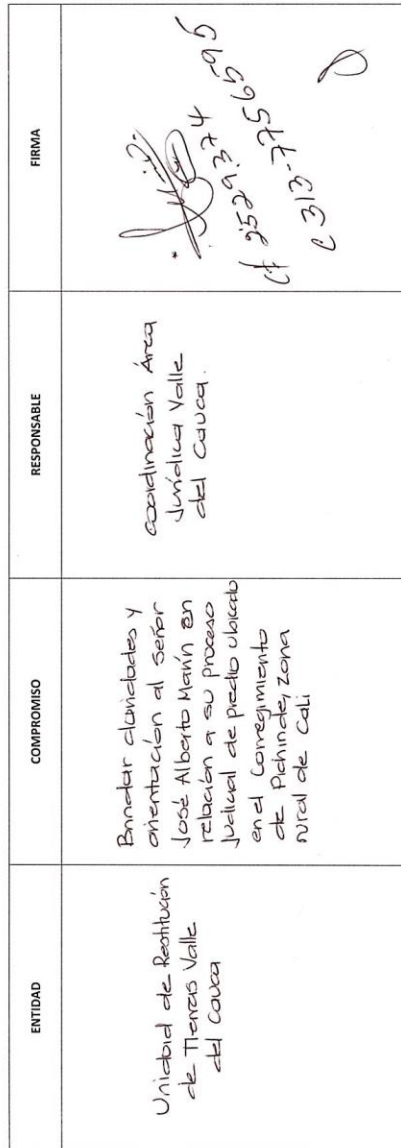 ENTIDAD
COMPROMISO
RESPONSABLE
FIRMA
Unidad de Restitución
de Tierras Valle
del Cauca
Brindar claridades y
orientación al señor
José Alberto Marín en
relación a su proceso
judicial de predio ubicado
en el Corregimiento
de Pichinde, zona
rural de Cali
Coordinación Área
Jurídica Valle
del Cauca.
25293374
c 313-7756595